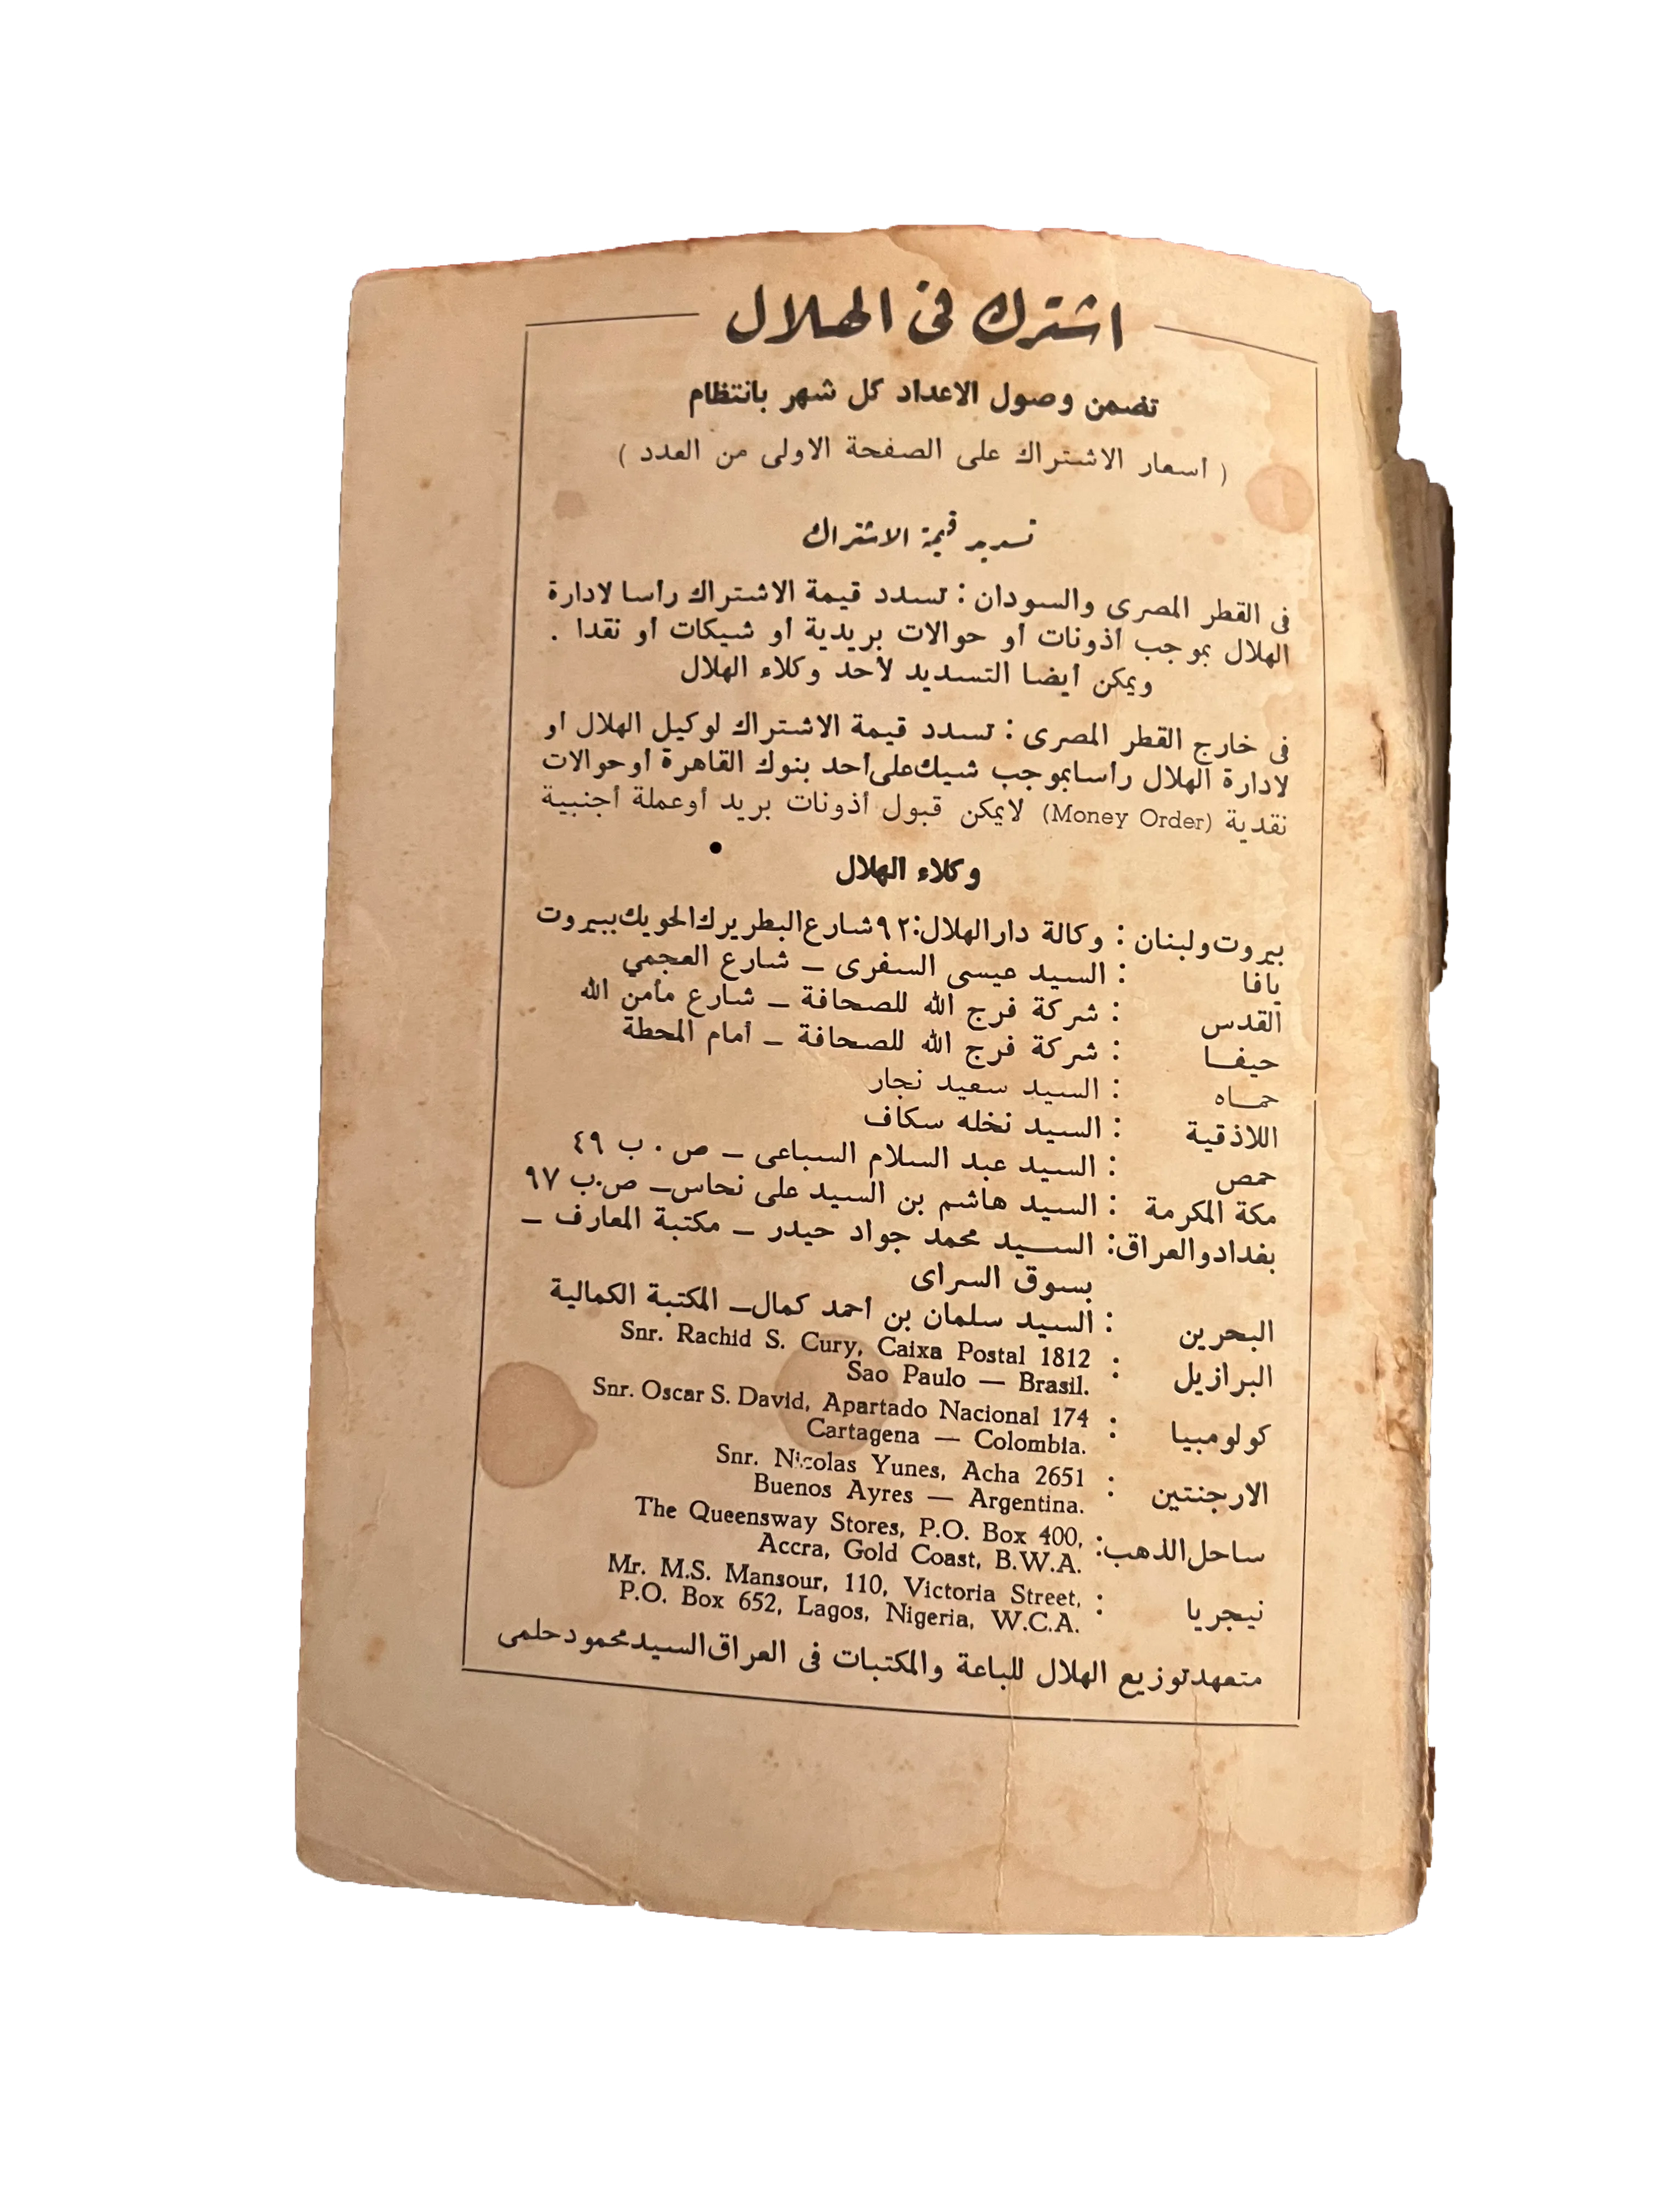 اشترك فى الهلال
تضمن وصول الاعداد كل شهر بانتظام
( أسعار الاشتراك على الصفحة الاولى من العدد )
تسديد قيمة الاشتراك
فى القطر المصرى والسودان : تسدد قيمة الاشتراك رأسا لادارة
الهلال بموجب أذونات أو حوالات بريدية أو شيكات أو نقدا .
ويمكن أيضا التسديد لأحد وكلاء الهلال
فى خارج القطر المصرى : تسدد قيمة الاشتراك لوكيل الهلال أو
لادارة الهلال رأسا بموجب شيك على أحد بنوك القاهرة أو حوالات
نقدية (Money Order) لايمكن قبول أذونات بريد أوعملة أجنبية
وكلاء الهلال
بيروت ولبنان : وكالة دار الهلال : ٩٢ شارع البطريرك الحويك ببيروت
يافا : السيد عيسى السفرى ـ شارع العجمي
القدس : شركة فرج الله للصحافة ـ شارع مأمن الله
حيفــا : شركة فرج الله للصحافة ـ أمام المحطة
حمــاه : السيد سعيد نجار
اللاذقية : السيد نخله سكاف
حمص : السيد عبد السلام السباعى ـ ص . ب ٤٩
مكة المكرمة : السيد هاشم بن السيد على نحاس ـ ص.ب ٩٧
بغداد والعراق : الســيد محمد جواد حيدر ـ مكتبة المعارف ـ
بسوق السراى
البحرين : السيد سلمان بن أحمد كمال ـ المكتبة الكمالية
البرازيل : Snr. Rachid S. Cury, Caixa Postal 1812
Sao Paulo — Brasil.
كولومبيا : Snr. Oscar S. David, Apartado Nacional 174
Cartagena — Colombia.
الارجنتين : Snr. Nicolas Yunes, Acha 2651
Buenos Ayres — Argentina.
ساحل الذهب : The Queensway Stores, P.O. Box 400,
Accra, Gold Coast, B.W.A.
نيجريا : Mr. M.S. Mansour, 110, Victoria Street,
P.O. Box 652, Lagos, Nigeria, W.C.A.
متعهد توزيع الهلال للباعة والمكتبات فى العراق السيد محمود حلمى